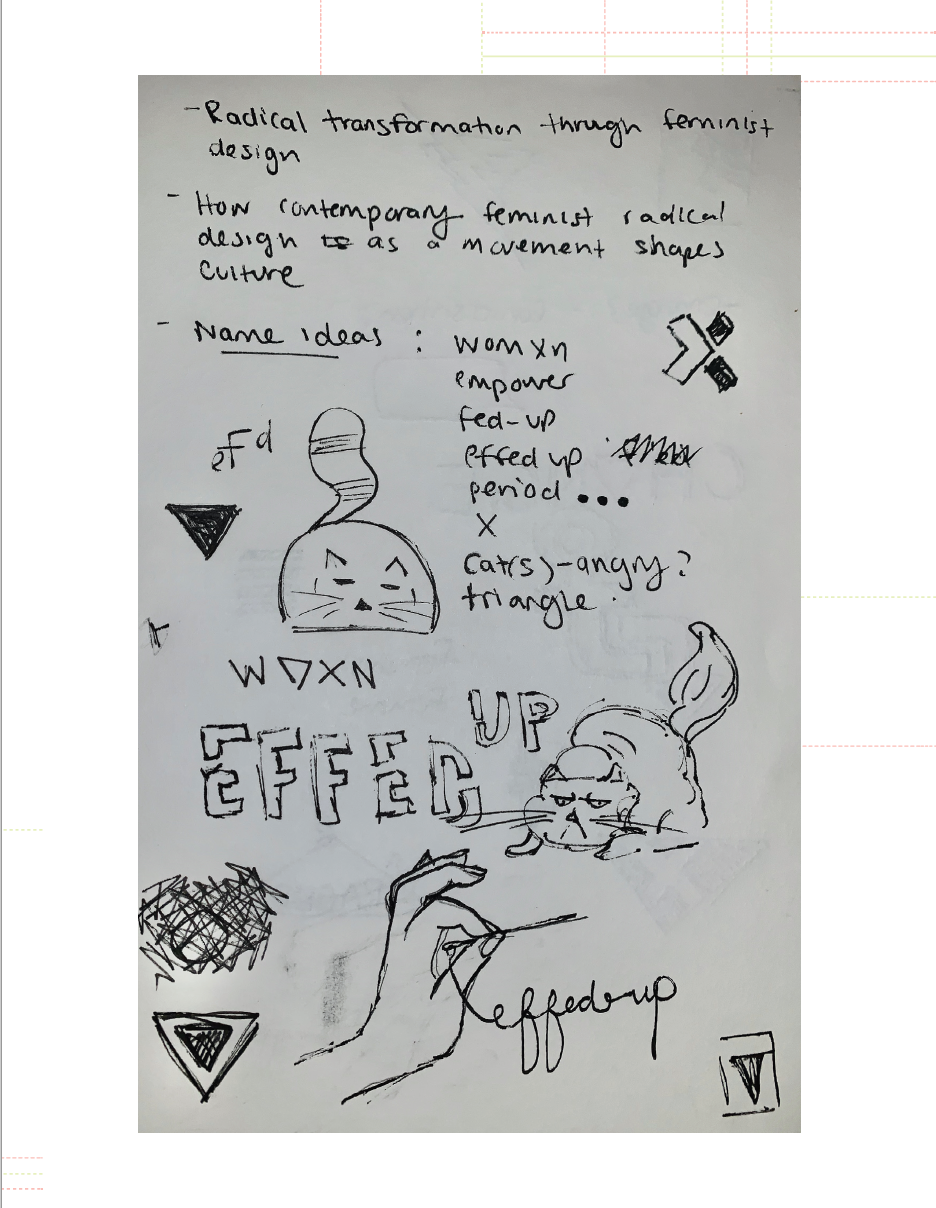 - Radical transformation through feminist
design
- How contemporary feminist radical
design as a movement shapes
culture
- Name ideas :
womxn
empower
fed-up
effed up
period ...
X
cat(s)-angry?
triangle.
eFd
W▽XN
EFFED UP
effed-up